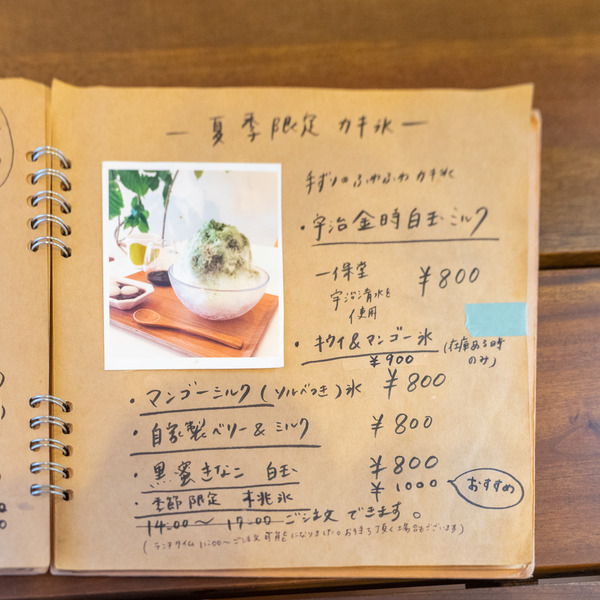 ー 夏季限定 カキ氷 ー
手ずりのふわふわカキ氷
・宇治金時白玉ミルク
一保堂 ¥800
宇治清水を
使用
・キウイ&マンゴー氷 (在庫ある時
¥900 のみ)
・マンゴーミルク(ソルベつき)氷 ¥800
・自家製ベリー&ミルク ¥800
・黒蜜きなこ 白玉 ¥800
・季節限定 桃氷 ¥1000 おすすめ
14:00〜17:00 ご注文できます。
(ランチタイム 11:00〜ご注文可能になりました。お待ち頂く場合もございます)